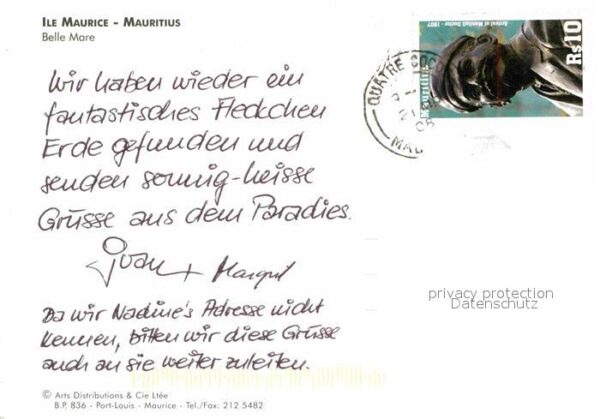 ILE MAURICE - MAURITIUS
Belle Mare
Wir haben wieder ein
fantastisches Fleckchen
Erde gefunden und
senden sonnig-heisse
Grüsse aus dem Paradies.
Ivan + Margrit
Da wir Nadine's Adresse nicht
kennen, bitten wir diese Grüsse
auch an sie weiter zuleiten.
© Arts Distributions & Cie Ltée
B.P. 836 - Port-Louis - Maurice - Tel./Fax: 212 5482
Arrival of Manilall Doctor - 1907
Mauritius
Rs10
QUATRE
privacy protection
Datenschutz